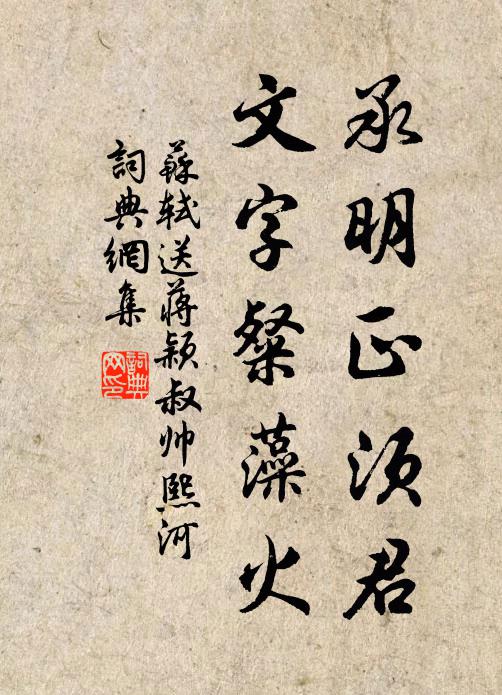 承明正須君
文字粲藻火
蘇軾送蔣穎叔帥熙河
詞典網集
詞典網印